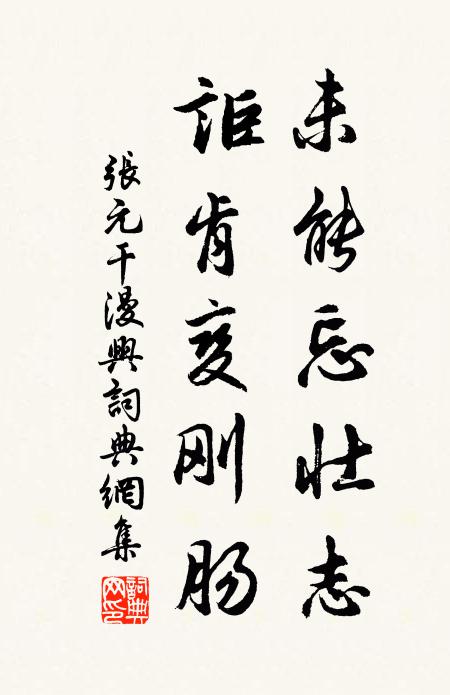 未能忘壮志
詎肯变刚肠
張元干漫興詞典網集
詞典网印